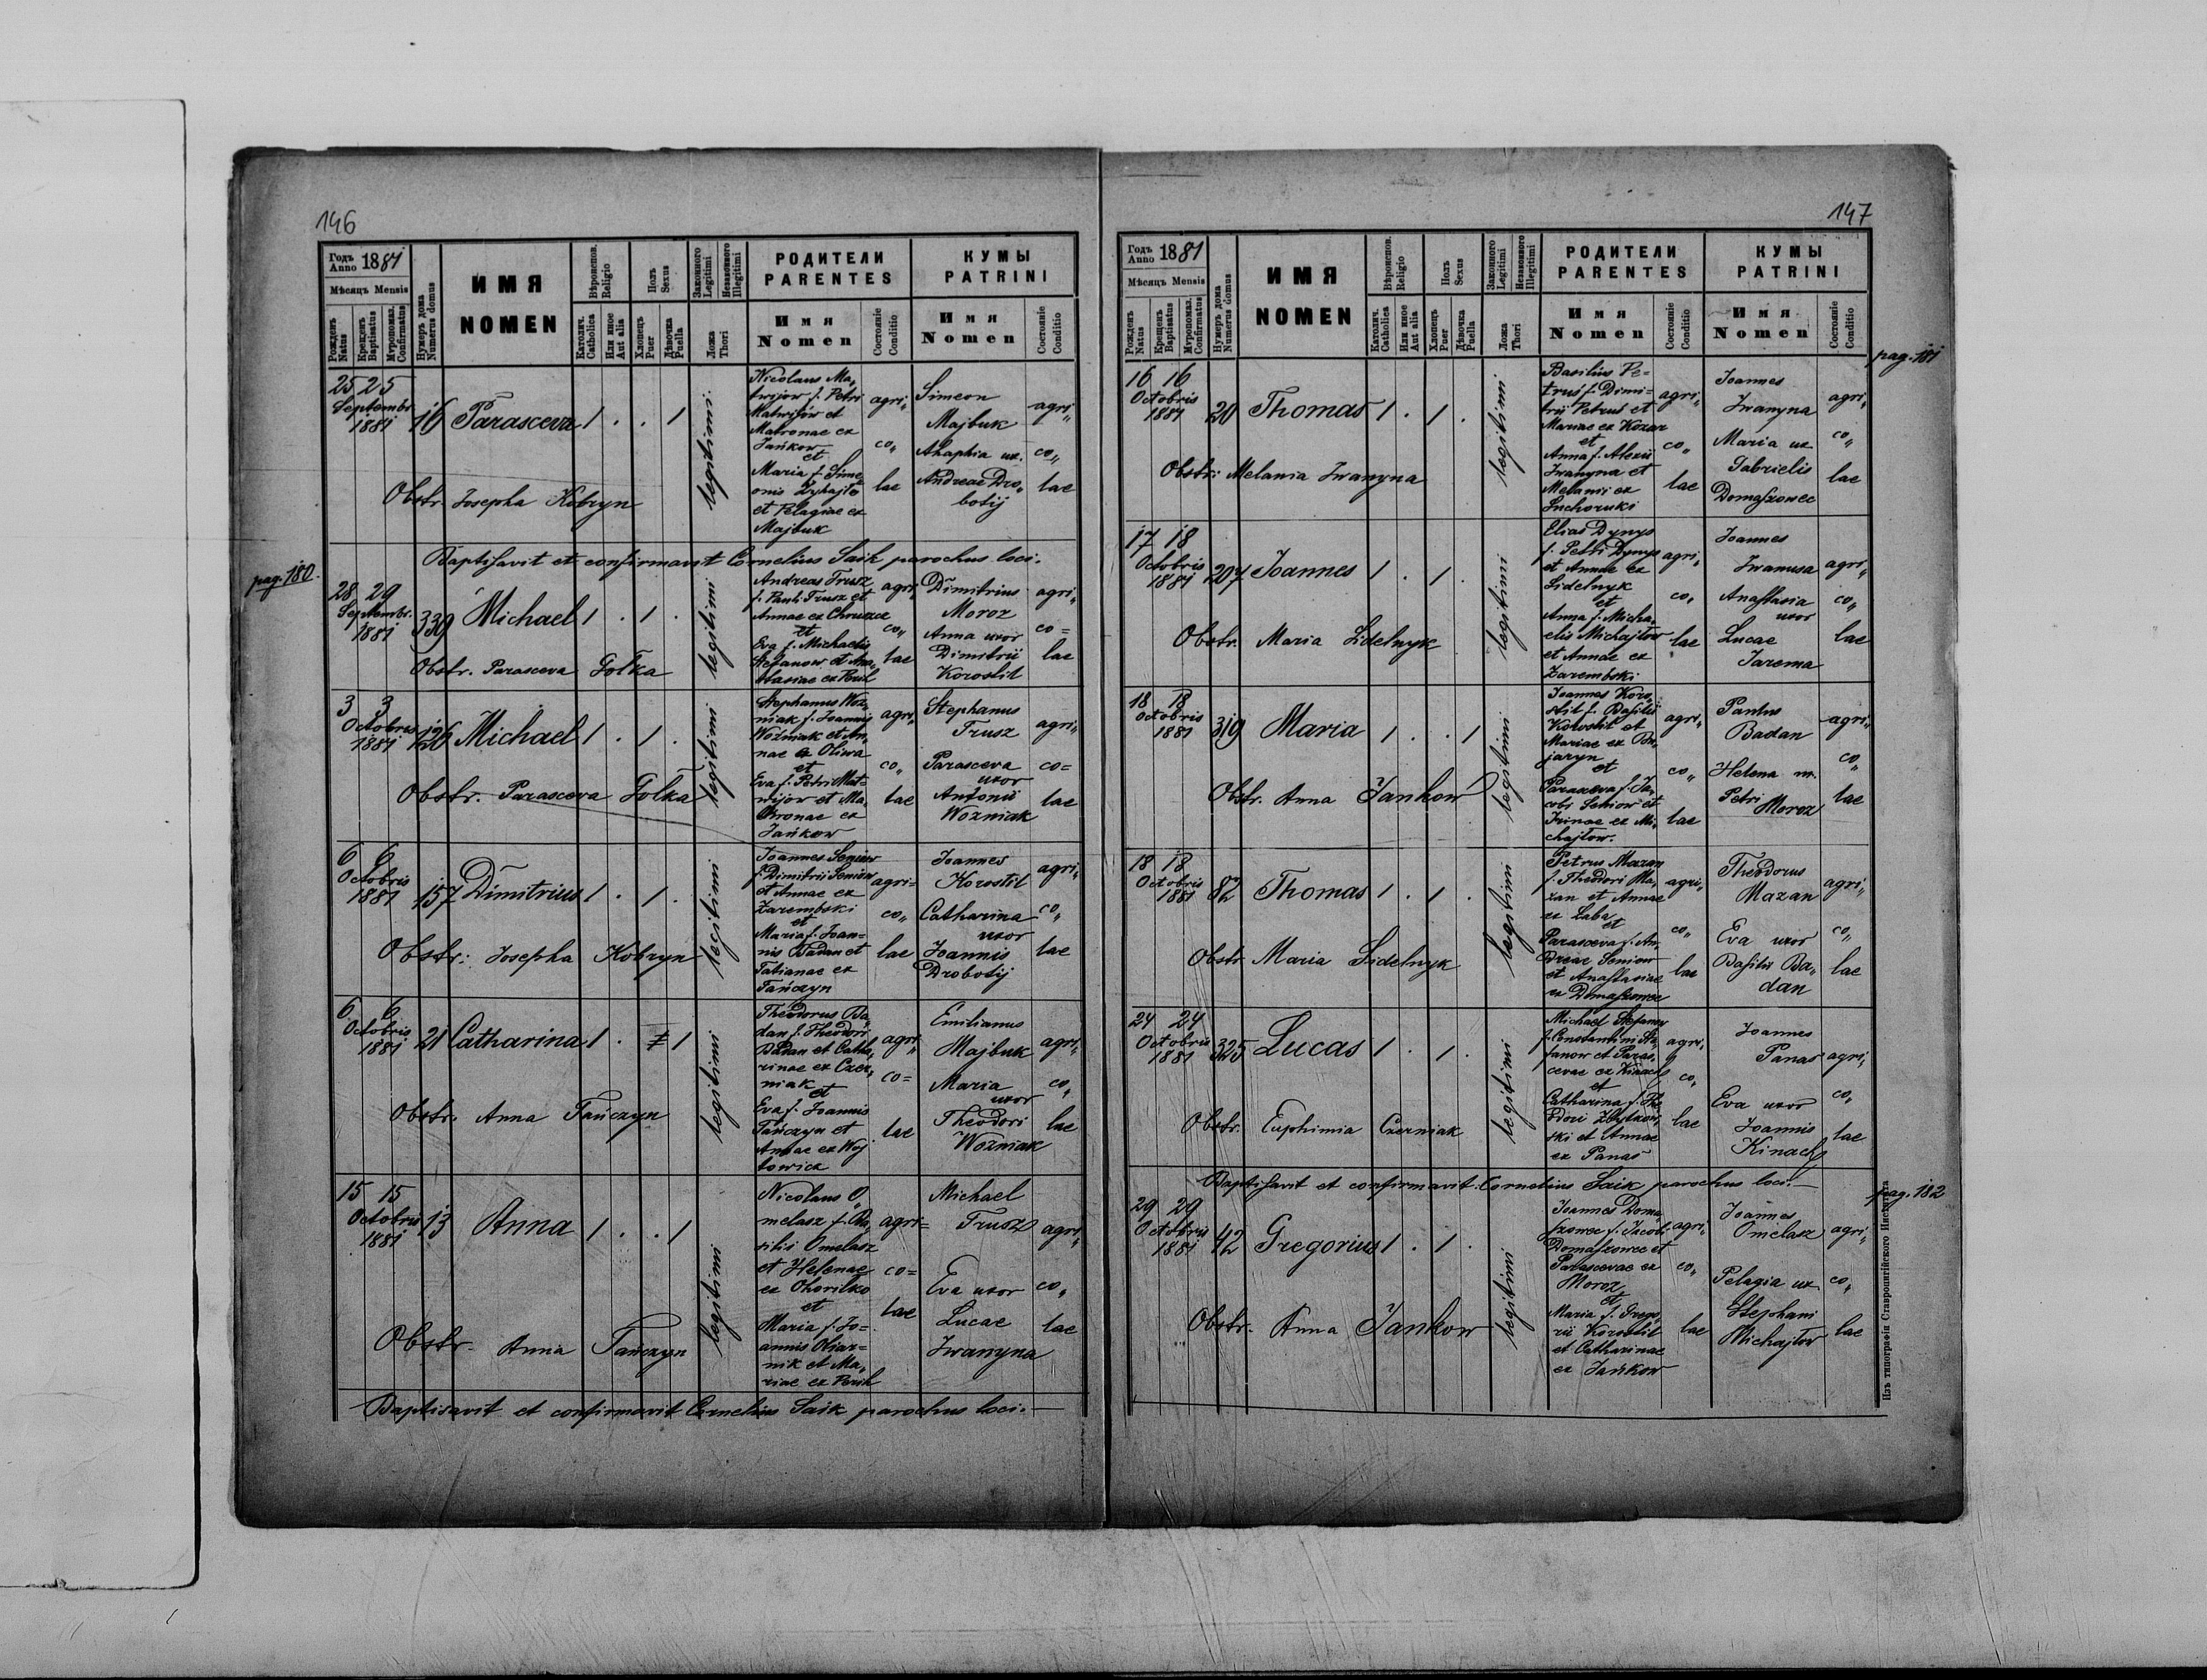 146
Годъ Anno 1881
Мѣсяцъ Mensis
Рожденъ Natus
Крещенъ Baptisatus
Мѵропомаз. Confirmatus
Нумеръ дома Numerus domus
ИМЯ
NOMEN
Вѣроиспов. Religio
Католич. Catholica
Или иное Aut alia
Полъ Sexus
Хлопецъ Puer
Дѣвочка Puella
Законного Legitimi
Незаконного Illegitimi
Ложа Thori
РОДИТЕЛИ
PARENTES
Имя
Nomen
Состояніе Conditio
КУМЫ
PATRINI
Имя
Nomen
Состояніе Conditio
25 25
Septembr.
1881
16 Parasceva 1 . . 1
legitimi
Nicolaus Ma„
twijów f. Petri
Matwijów et
Matronae ex
Jańkow
et
Maria f. Sime„
onis
et Pelagiae ex
Majbuk
agri„
co„
lae
Simeon
Majbuk
Ahaphia ux.
Andreae Dro„
botij
agri„
co„
lae
Obstr. Josepha Kobryn
Baptisavit et confirmavit Cornelius Saik parochus loci.
pag. 180.
28 29
Septembr.
1881
339 Michael 1 . 1 .
legitimi
Andreas Trusz
f. Pauli Trusz et
Annae ex
et
Eva f. Michaelis
Stefanow et Ana„
stasiae ex
agri„
co„
lae
Dimitrius
Moroz
Anna uxor
Dimitrii
Korostil
agri„
co=
lae
Obstr. Parasceva Golka
3 3
Octobris
1881
126 Michael 1 . 1 .
legitimi
Stephanus Woz„
niak f. Joannis
Woźniak et An„
nae ex Oliwa
et
Eva f. Petri Mat=
wijow et Ma„
tronae ex
Jańkow
agri„
co„
lae
Stephanus
Trusz
Parasceva
uxor
Antonii
Wozniak
agri„
co=
lae
Obstr. Parasceva Golka
6 6
Octobris
1881
157 Dimitrius 1 . 1 .
legitimi
Joannes Seniow
f. Dimitrii Seniow
et Annae ex
Zarembski
et
Maria f. Joan=
nis Badan et
Tatianae ex
Tańczyn
agri=
co„
lae
Joannes
Korostil
Catharina
uxor
Joannis
Drobotij
agri„
co„
lae
Obstr: Josepha Kobryn
6 6
Octobris
1881
21 Catharina 1 . 1
legitimi
Theodorus Ba„
dan f. Theodori
Badan et Catha„
rinae ex Czer„
niak
et
Eva f. Joannis
Tańczyn et
Annae ex Woj
towicz
agri„
co=
lae
Emilianus
Majbuk
Maria
uxor
Theodori
Woźniak
agri„
co„
lae
Obstr. Anna Tańczyn
15 15
Octobris
1881
13 Anna 1 . . 1
legitimi
Nicolaus O„
melasz f. Ba„
silii Omelasz
et Helenae
ex Ohorilko
et
Maria f. Jo=
annis Oliar=
nik et Ma„
riae ex
agri=
co=
lae
Michael
Trusz
Eva uxor
Lucae
Iwanyna
agri„
co„
lae
Obstr. Anna Tańczyn
Baptisavit et confirmavit Cornelius Saik parochus loci.—
147
Годъ Anno 1881
Мѣсяцъ Mensis
Рожденъ Natus
Крещенъ Baptisatus
Мѵропомаз. Confirmatus
Нумеръ дома Numerus domus
ИМЯ
NOMEN
Вѣроиспов. Religio
Католич. Catholica
Или иное Aut alia
Полъ Sexus
Хлопецъ Puer
Дѣвочка Puella
Законного Legitimi
Незаконного Illegitimi
Ложа Thori
РОДИТЕЛИ
PARENTES
Имя
Nomen
Состояніе Conditio
КУМЫ
PATRINI
Имя
Nomen
Состояніе Conditio
pag. 181
16 16
Octobris
1881
20 Thomas 1 . 1 .
legitimi
Basilius Pe=
truś f. Dimi=
trii Petruś et
Mariae ex Kozar
et
Anna f. Alexii
Iwanyna et
Melanii ex
Suchoruki
agri„
co„
lae
Joannes
Iwanyna
Maria ux.
Gabrielis
Domaszowec
agri„
co„
lae
Obstr: Melania Iwanyna
17 18
Octobris
1881
207 Joannes 1 . 1 .
legitimi
Elias Dynys
f. Petri Dynys
et Annae ex
Sidelnyk
et
Anna f. Micha„
elis Michajłow
et Annae ex
Zarembski
agri„
co„
lae
Joannes
Iwanusa
Anastasia
uxor
Lucae
Jarema
agri„
co„
lae
Obstr. Maria Sidelnyk
18 18
Octobris
1881
319 Maria 1 . . 1
legitimi
Joannes Koro„
stil f. Basilii
Korostil et
Mariae ex Bu„
jaryn
et
Parasceva f. Ja„
cobi Seniow et
Irinae ex Mi„
chajłow.
agri„
co„
lae
Pantus
Badan
Helena ux.
Petri
Moroz
agri„
co„
lae
Obstr. Anna Jankow
18 18
Octobris
1881
82 Thomas 1 . 1 .
legitimi
Petrus Mazan
f. Theodori Ma„
zan et Annae
ex Laba
et
Parasceva f. An„
dreae Seniow
et Anastasiae
ex Domaszowec
agri„
co„
lae
Theodorus
Mazan
Eva uxor
Basilii Ba„
dan
agri„
co„
lae
Obstr. Maria Sidelnyk
24 24
Octobris
1881
325 Lucas 1 . 1 .
legitimi
Michael Stefanow
f. Constantini Ste„
fanow et Paras„
cevae ex Kinach
et
Catharina f. The„
odori
ski et Annae
ex Panas
agri„
co„
lae
Joannes
Panas
Eva uxor
Joannis
Kinach
agri„
co„
lae
Obstr. Euphimia Czerniak
Baptisavit et confirmavit: Cornelius Saik parochus loci.—
pag. 182
29 29
Octobris
1881
42 Gregorius 1 . 1 .
legitimi
Joannes Doma„
szowec f. Jacobi
Domaszowec et
Parascevae ex
Moroz
et
Maria f. Grego„
rii Korostil
et Catharinae
ex Jańkow
agri„
co„
lae
Joannes
Omelasz
Pelagia ux.
Stephani
Michajłow
agri„
co„
lae
Obstr. Anna Jankow
Изъ типографіи Ставропигійского Института